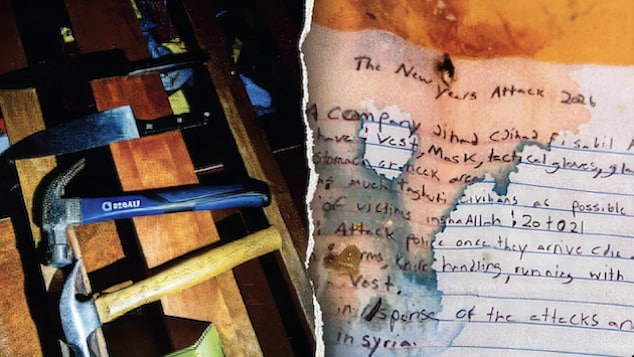 The New Years Attack 2026
Company Jihad (Jihad Fisabil
Vest, Mask, tactical gloves,
stomach or neck area
much taghuti civilians as possible
of victims inshaAllah: 20 to 21
Attack police once they arrive
Knife handling, running with
Vest.
in response of the attacks
in syria.